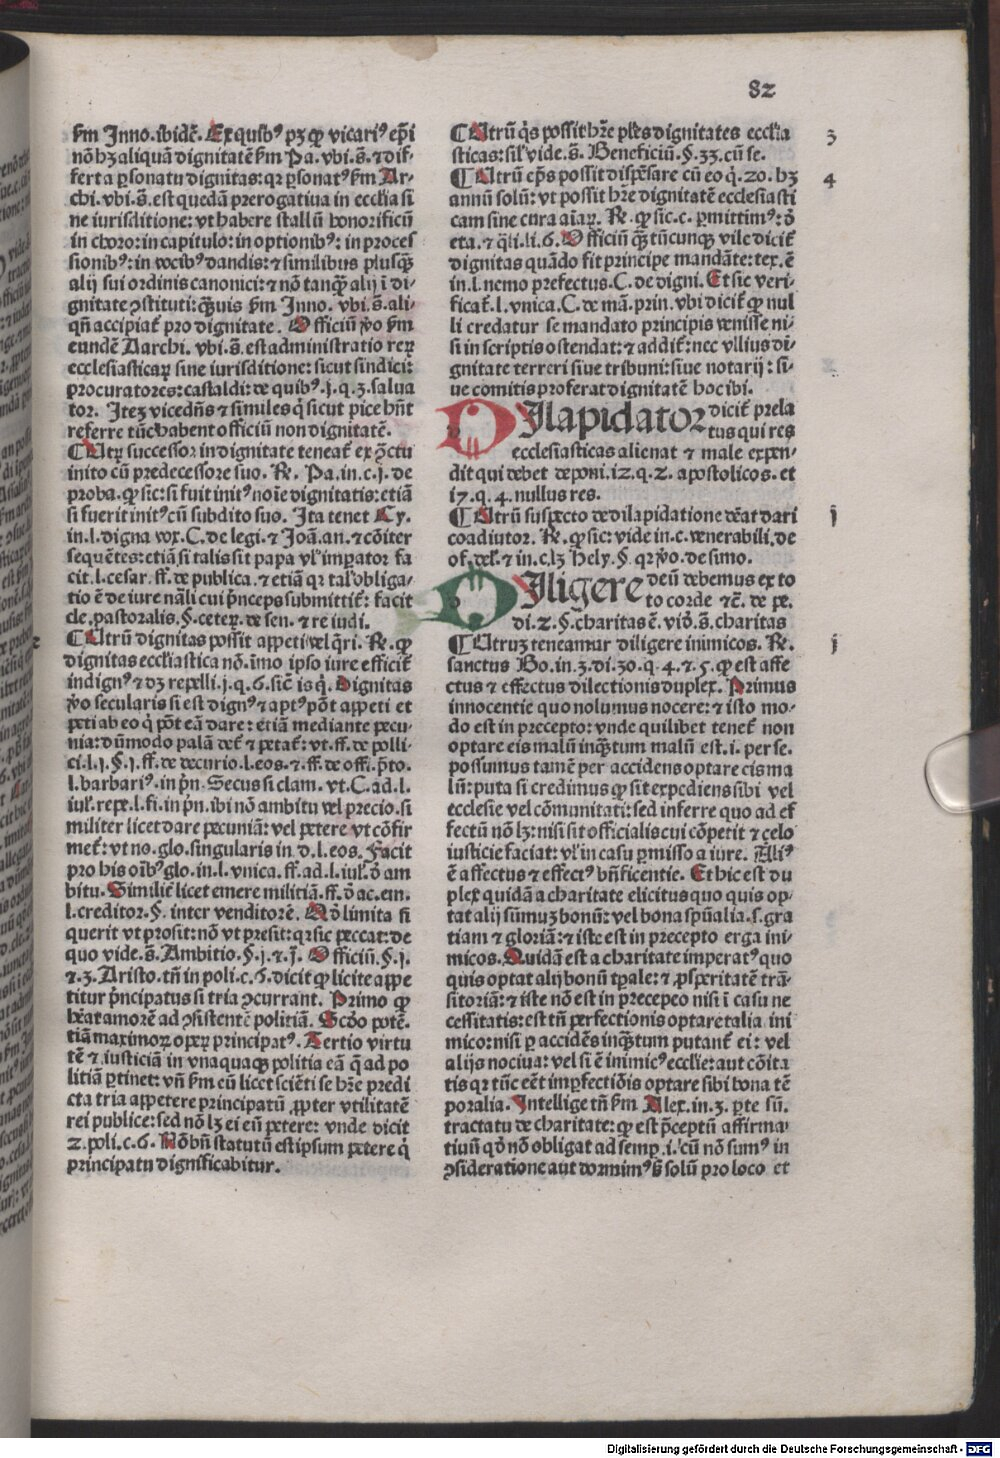 82
ẜm Inno. ibidē. Ex quibꝰ pꝫ ꝙ vicariꝰ ep̄i
nō hꝫ aliquā dignitatē ẜm Pa. vbi. s̄. ⁊ dif-
fert a ꝑsonatu dignitas: qꝛ ꝑsonatꝰ ẜm Ar-
chi. vbi. s̄. est quedā prerogatiua in ecclīa si
ne iurisditione: vt habere stallū honorificū
in choro: in capitulo: in optionibꝰ: in proces
sionibꝰ: in vocibꝰ dandis: ⁊ similibus plusqꝫ̄
alij sui ordinis canonici: ⁊ nō tanqꝫ̄ alij ī di-
gnitate ꝯstituti: qꝫ̄uis ẜm Inno. vbi. s̄. ali-
qn̄ accipiat̄ pro dignitate. Officiū ꝟo ẜm
eundē Aarchi. vbi. s̄. est administratio reꝝ
ecclesiasticaꝝ sine iurisditione: sicut sindici:
procuratores: castaldi: de quibꝰ. j. q. 3. salua
tor. Iteꝫ vicedn̄s ⁊ similes q̇ sicut pice hn̄t
referre tūc habent officiū non dignitatē.
¶ Utꝝ successor in dignitate teneat̄ ex ꝯ̄ctu
inito cū predecessore suo. ℞. Pa. in. c. j. de
proba. ꝙ sic: si fuit initꝰ noīe dignitatis: etiā
si fuerit initꝰ cū subdito suo. Ita tenet Cy.
in. l. digna vox. C. de legi. ⁊ Joā. an. ⁊ cōiter
sequētes: etiā si talis sit papa vl̓ imꝑator fa
cit. l. cesar. ff. de publica. ⁊ etiā qꝛ tal̓ obliga-
tio ē de iure nāli cui p̄nceps submittit̄: facit
cle. pastoralis. §. ceteꝝ. de sen. ⁊ re iudi.
¶ Utrū dignitas possit appeti vel q̄ri. ℞. ꝙ
dignitas ecclīastica nō. īmo ipso iure efficit̄
indignꝰ ⁊ dꝫ repelli. j. q. 6. sicē is q̇. Dignitas
ꝟo secularis si est dignꝰ ⁊ aptꝰ pōt appeti et
peti ab eo q̇ pōt eā dare: etiā mediante pecu-
nia: dūmodo palā det̄ ⁊ petat̄: vt. ff. de polli-
ci. l. j. §. j. ff. de decurio. l. eos. ⁊. ff. de offi. p̄to.
l. barbariꝰ. in p̄n. Secus si clam. vt. C. ad. l.
iul̓. repe. l. fi. in p̄n. ibi nō ambitu vel precio. si
militer licet dare pecuniā: vel petere vt cōfir
met̄: vt no. glo. singularis in. d. l. eos. Facit
pro his oībꝰ glo. in. l. vnica. ff. ad. l. iul̓. d̄ am
bitu. Similit̄ licet emere militiā. ff. d̄ ac. em.
l. creditor. §. inter venditorē. Nō limita si
querit vt prosit: nō vt presit: qꝛ sic peccat: de
quo vide. s̄. Ambitio. §. j. ⁊ z̄. Officiū. §. j.
⁊. 3. Aristo. tn̄ in poli. c. 6. dicit ꝙ licite appe
titur p̄ncipatus si tria ꝯcurrant. Primo ꝙ
hēat amorē ad ꝯsistentē politiā. Scd̄o potē.
tiā maximoꝝ opeꝝ principatꝰ. Tertio virtu
tē ⁊ iusticiā in vnaquaqꝫ politia eā q̄ ad po
litiā ꝑtinet: vn̄ ẜm eū licet sciēti se hr̄e predi
cta tria appetere principatū ꝓpter vtilitatē
rei publice: sed nō lꝫ ei eū petere: vnde dicit
2. poli. c. 6. Nō bn̄ statutū est ipsum petere q̇
principatu dignificabitur.
¶ Utrū q̇s possit hr̄e pl̄es dignitates ecclīa 3
sticas: sil̓ vide. s̄. Beneficiū. §. 33. cū se.
¶ Utrū ep̄s possit dispēsare cū eo q̇. 20. hꝫ 4
annū solū: vt possit hr̄e dignitatē ecclesiasti
cam sine cura aīaꝝ. ℞. ꝙ sic. c. ꝑmittimꝰ: d̄
eta. ⁊ q̄li. li. 6. Officiū qꝫ̄tūcunqꝫ vile dicit̄
dignitas quādo fit principe mandāte: tex. ē
in. l. nemo prefectus. C. de digni. Et sic veri-
ficat̄. l. vnica. C. de mā. prin. vbi dicit̄ ꝙ nul
li credatur se mandato principis venisse ni-
si in scriptis ostendat: ⁊ addit̄: nec vllius di-
gnitate terreri siue tribuni: siue notarij: si-
ue comitis proferat dignitatē hoc ibi.
DIlapidator dicit̄ prela
tus qui res
ecclesiasticas alienat ⁊ male expen-
dit qui debet deponi. 12. q. 2. apostolicos. et
17. q. 4. nullus res.
¶ Utrū suspecto de dilapidatione debeat dari j
coadiutor. ℞. ꝙ sic: vide in. c. venerabili. de
of. del̓. ⁊ in. c. lꝫ hely. §. qꝛ ꝟo. de simo.
DIligere deū debemus ex to
to corde ⁊c̄. de pe.
di. 2. §. charitas ē. vid̄. s̄. charitas
¶ Utruꝫ teneamur diligere inimicos. ℞. j
sanctus Bo. in. 3. di. 30. q. 4. ⁊. 5. ꝙ est affe
ctus ⁊ effectus dilectionis duplex. Primus
innocentie quo nolumus nocere: ⁊ isto mo-
do est in precepto: vnde quilibet tenet̄ non
optare eis malū inqꝫ̄tum malū est. i. per se.
possumus tamē per accidens optare eis ma
lū: puta si credimus ꝙ sit expediens sibi vel
ecclesie vel cōmunitati: sed inferre quo ad ef
fectū nō lꝫ: nisi sit officialis cui cōpetit ⁊ zelo
iusticie faciat: vl̓ in casu ꝑmisso a iure. Aliꝰ
ē affectus ⁊ effectꝰ bn̄ficentie. Et hic est du
plex quidā a charitate elicitus quo quis op-
tat alij sūmuꝫ bonū: vel bona spūalia. s. gra
tiam ⁊ gloriā: ⁊ iste est in precepto erga ini-
micos. Quidā est a charitate imperatꝰ quo
quis optat alij bonū tꝑale: ⁊ ꝓsperitatē trā-
sitoriā: ⁊ iste nō est in precepeo nisi ī casu ne
cessitatis: est tn̄ perfectionis optare talia ini
mico: nisi ꝑ accidēs inqꝫ̄tum putant̄ ei: vel
alijs nociua: vel si ē inimicꝰ ecclīe: aut cōīta
tis qꝛ tūc eēt imꝑfectiōis optare sibi bona tē
poralia. Intellige tn̄ ẜm Alex. in. 3. ꝑte sū.
tractatu de charitate: ꝙ est p̄ceptū affirma-
tiuū qd̄ nō obligat ad semꝑ. i. cū nō sumꝰ in
ꝯsideratione aut dormimꝰ ꝫ solū pro loco et
Digitalisierung gefördert durch die Deutsche Forschungsgemeinschaft - DFG